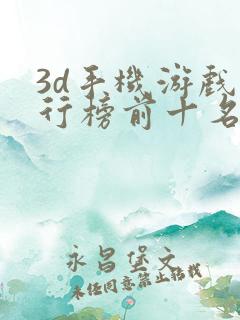 3d手機游戲
行榜前十名
永昌堡文
未经同意禁止转载